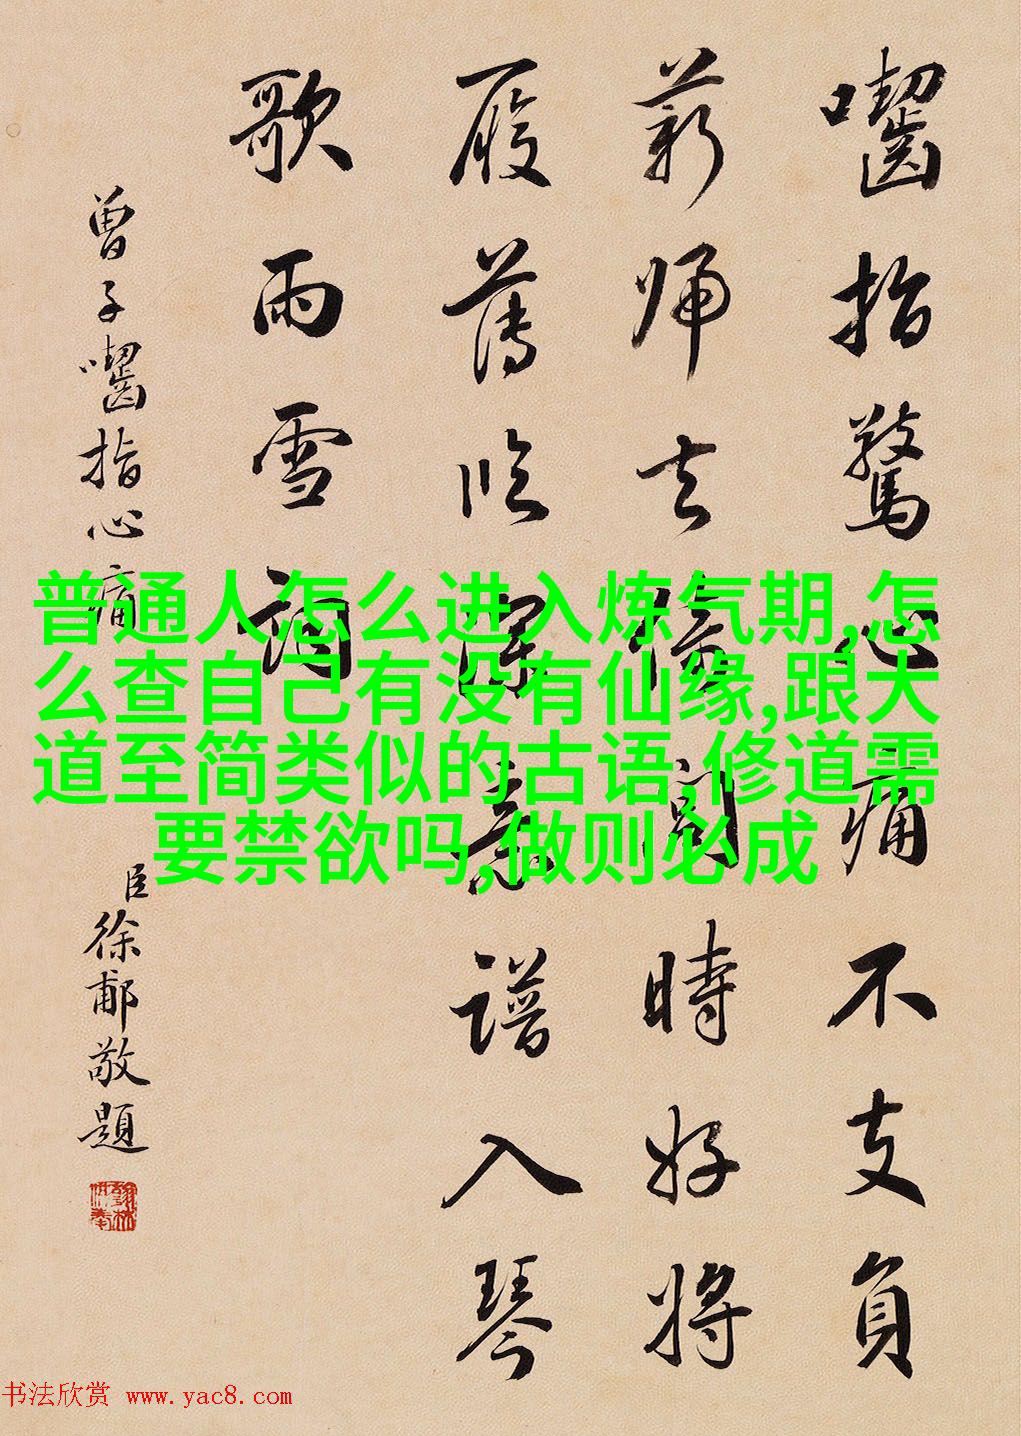 囓指驚心痛不支負
薪歸去㨿閒時好將
履薄臨深意譜入琴
歌雨雪詞
曾子囓指心痛
臣徐郙敬題
普通人怎么进入炼气期,怎
么查自己有没有仙缘,跟大
道至简类似的古语,修道需
要禁欲吗,做则必成
书法欣赏 www.yac8.com